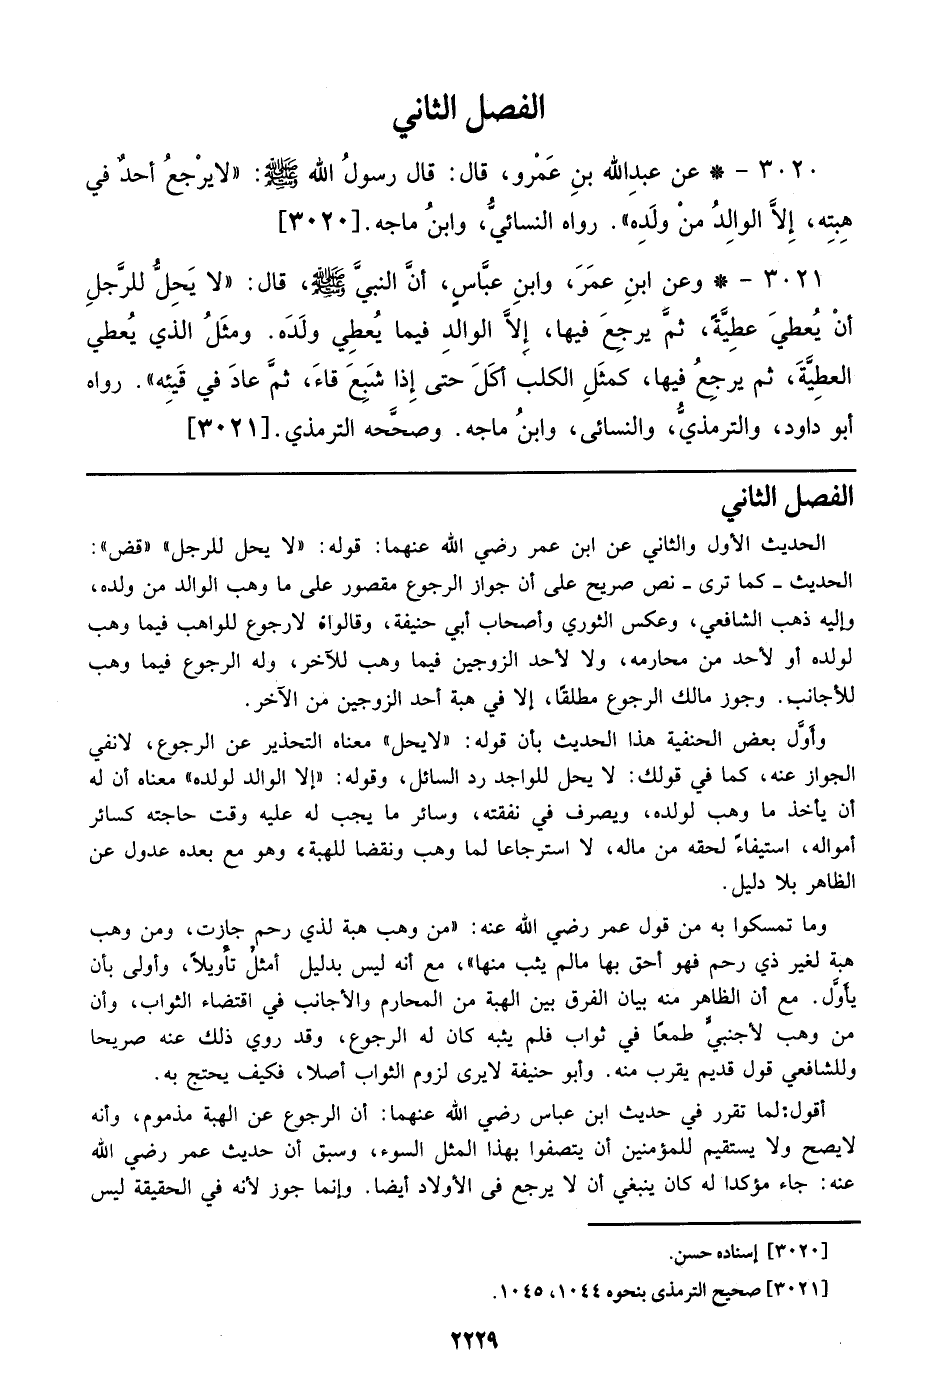 الفصل الثاني
٣٠٢٠ – * عن عبدِالله بنِ عَمْرو، قال: قال رسولُ الله ﷺ: «لايرْجعُ أحدٌ في
هِبتِه، إِلاَّ الوالِدُ منْ ولَدِه». رواه النسائيُّ، وابنُ ماجه.[٣٠٢٠]
٣٠٢١ – * وعن ابنِ عمَرَ، وابنِ عبَّاسٍ، أنَّ النبيَّ ﷺ، قال: «لا يَحِلُّ للرَّجلِ
أنْ يُعطيَ عطِيَّةً، ثمَّ يرجِعَ فيها، إِلاَّ الوالدِ فيما يُعطِي ولَدَه. ومثَلُ الذي يُعطي
العطِيَّةَ، ثم يرجِعُ فيها، كمثَلِ الكلب أكَلَ حتى إِذا شَبِعَ قاءَ، ثمَّ عادَ في قَيئِه». رواه
أبو داود، والترمذيُّ، والنسائى، وابنُ ماجه. وصحَّحه الترمذي.[٣٠٢١]
الفصل الثاني
الحديث الأول والثاني عن ابن عمر رضي الله عنهما: قوله: «لا يحل للرجل» «قض»:
الحديث ـ كما ترى ـ نص صريح على أن جواز الرجوع مقصور على ما وهب الوالد من ولده،
وإليه ذهب الشافعي، وعكس الثوري وأصحاب أبي حنيفة، وقالوا: لارجوع للواهب فيما وهب
لولده أو لأحد من محارمه، ولا لأحد الزوجين فيما وهب للآخر، وله الرجوع فيما وهب
للأجانب. وجوز مالك الرجوع مطلقًا، إلا في هبة أحد الزوجين من الآخر.
وأوَّل بعض الحنفية هذا الحديث بأن قوله: «لايحل» معناه التحذير عن الرجوع، لانفي
الجواز عنه، كما في قولك: لا يحل للواجد رد السائل، وقوله: «إلا الوالد لولده» معناه أن له
أن يأخذ ما وهب لولده، ويصرف في نفقته، وسائر ما يجب له عليه وقت حاجته كسائر
أمواله، استيفاءً لحقه من ماله، لا استرجاعا لما وهب ونقضا للهبة، وهو مع بعده عدول عن
الظاهر بلا دليل.
وما تمسكوا به من قول عمر رضي الله عنه: «من وهب هبة لذي رحم جازت، ومن وهب
هبة لغير ذي رحم فهو أحق بها مالم يثب منها»، مع أنه ليس بدليل أمثلُ تأويلاً، وأولى بأن
يأوَّل. مع أن الظاهر منه بيان الفرق بين الهبة من المحارم والأجانب في اقتضاء الثواب، وأن
من وهب لأجنبيٍّ طمعًا في ثواب فلم يثبه كان له الرجوع، وقد روي ذلك عنه صريحا
وللشافعي قول قديم يقرب منه. وأبو حنيفة لايرى لزوم الثواب أصلا، فكيف يحتج به.
أقول:لما تقرر في حديث ابن عباس رضي الله عنهما: أن الرجوع عن الهبة مذموم، وأنه
لايصح ولا يستقيم للمؤمنين أن يتصفوا بهذا المثل السوء، وسبق أن حديث عمر رضي الله
عنه: جاء مؤكدا له كان ينبغي أن لا يرجع فى الأولاد أيضا. وإنما جوز لأنه في الحقيقة ليس
[٣٠٢٠] إسناده حسن.
[٣٠٢١] صحيح الترمذى بنحوه ١٠٤٤، ١٠٤٥.
٢٢٢٩